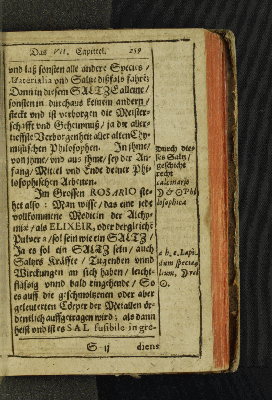 Das VII. Capittel. 259
vnd laß sonsten alle andere Species /
Materialia vnd Saltze dißfals fahrē;
Dann in diesem SALTZ alleine /
sonsten in durchaus keinem andern /
steckt vnd ist verborgen die Meister-
schafft vnd Geheimnuß / ja die aller-
tieffste Verborgenheit aller alten Chy-
mistischen Philosophen. In jhme /
von jhme / vnd aus jhme / sey der An-
fang / Mittel vnd Ende deiner Phi-
losophischen Arbeiten.
Durch dies
ses Saltz /
geschicht
recht
Im Grossen ROSARIO ste-
het also: Man wisse / das eine jede
vollkommene Medicin der Alchy-
miæ / als ELIXEIR, oder dergleichē
Pulver / sol sein wie ein SALTZ /
Ja es sol ein SALTZ sein / auch
Saltzes Kräffte / Tugenden vnnd
Wirckungen an sich haben / leicht-
flüssig vnnd bald eingehende / So
es auff die geschmoltzenen oder aber
geleuterten Cörper der Metallen or-
dentlich auffgetragen wird; als dann
heist vnd ist es SAL fusibile ingre-
S ij diens